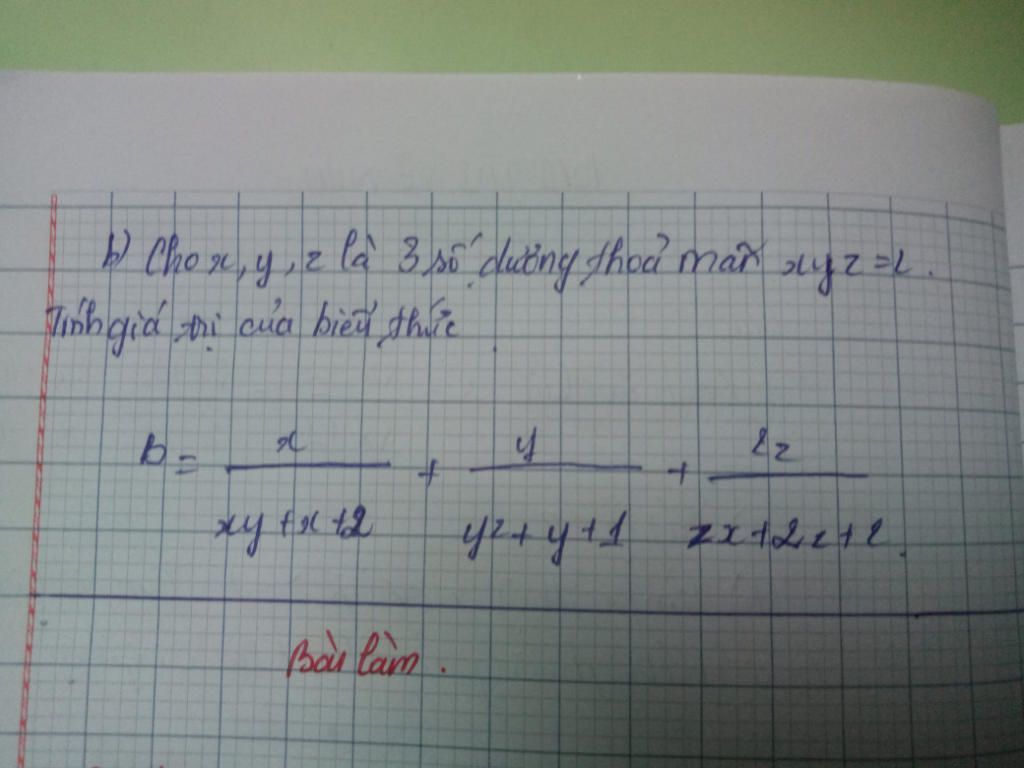 b) Cho x, y, z là 3 số dương thoả mãn xyz = 2.
Tính giá trị của biểu thức
B = x/(xy + x + 2) + y/(yz + y + 1) + 2z/(zx + 2z + 2).
Bài làm.